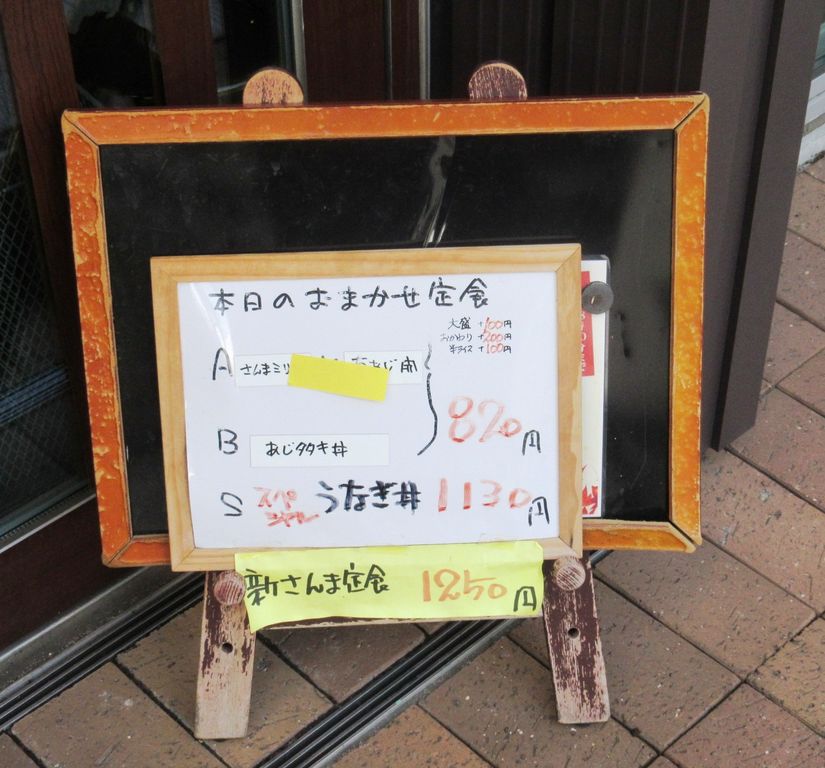 本日のおまかせ定食
大盛 +100円
おかわり +200円
半ライス +100円
A さんまミリ
B あじタタキ丼
820円
S スペシャル うなぎ丼 1130円
新さんま定食 1250円